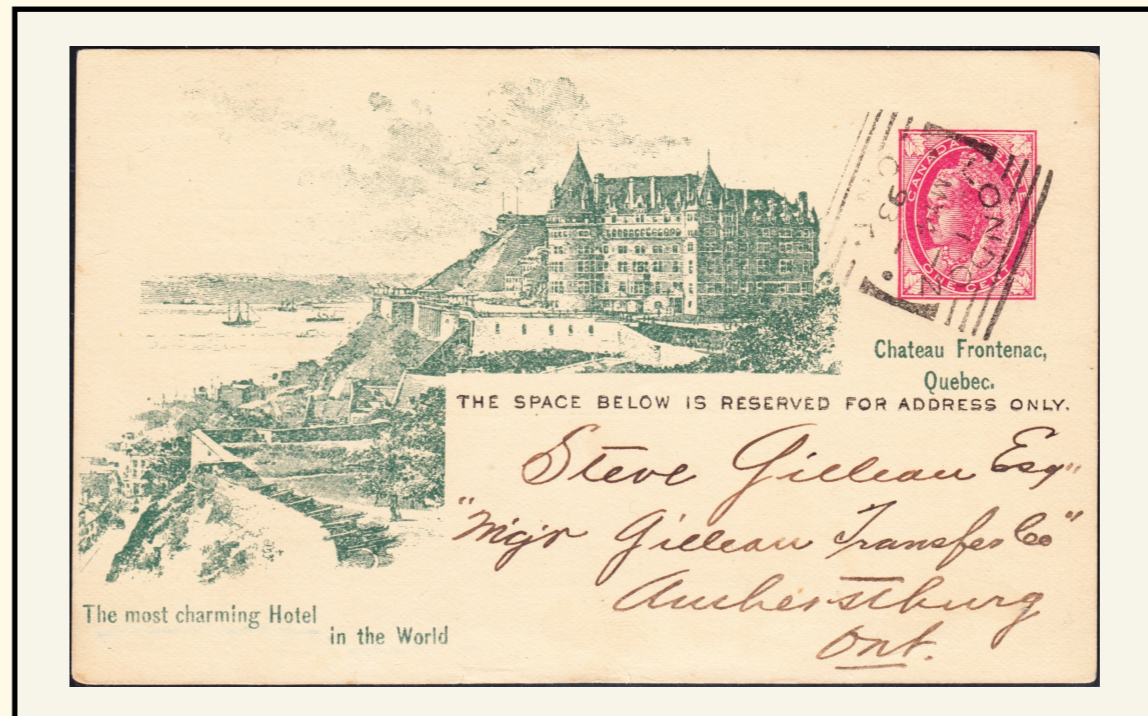 CANADA POSTAGE
ONE CENT
LONDON
MY
1
93
Chateau Frontenac,
Quebec.
THE SPACE BELOW IS RESERVED FOR ADDRESS ONLY.
Steve Gilleau Esq"
"Mgr Gilleau Transfer Co"
Amherstburg
Ont.
The most charming Hotel
in the World